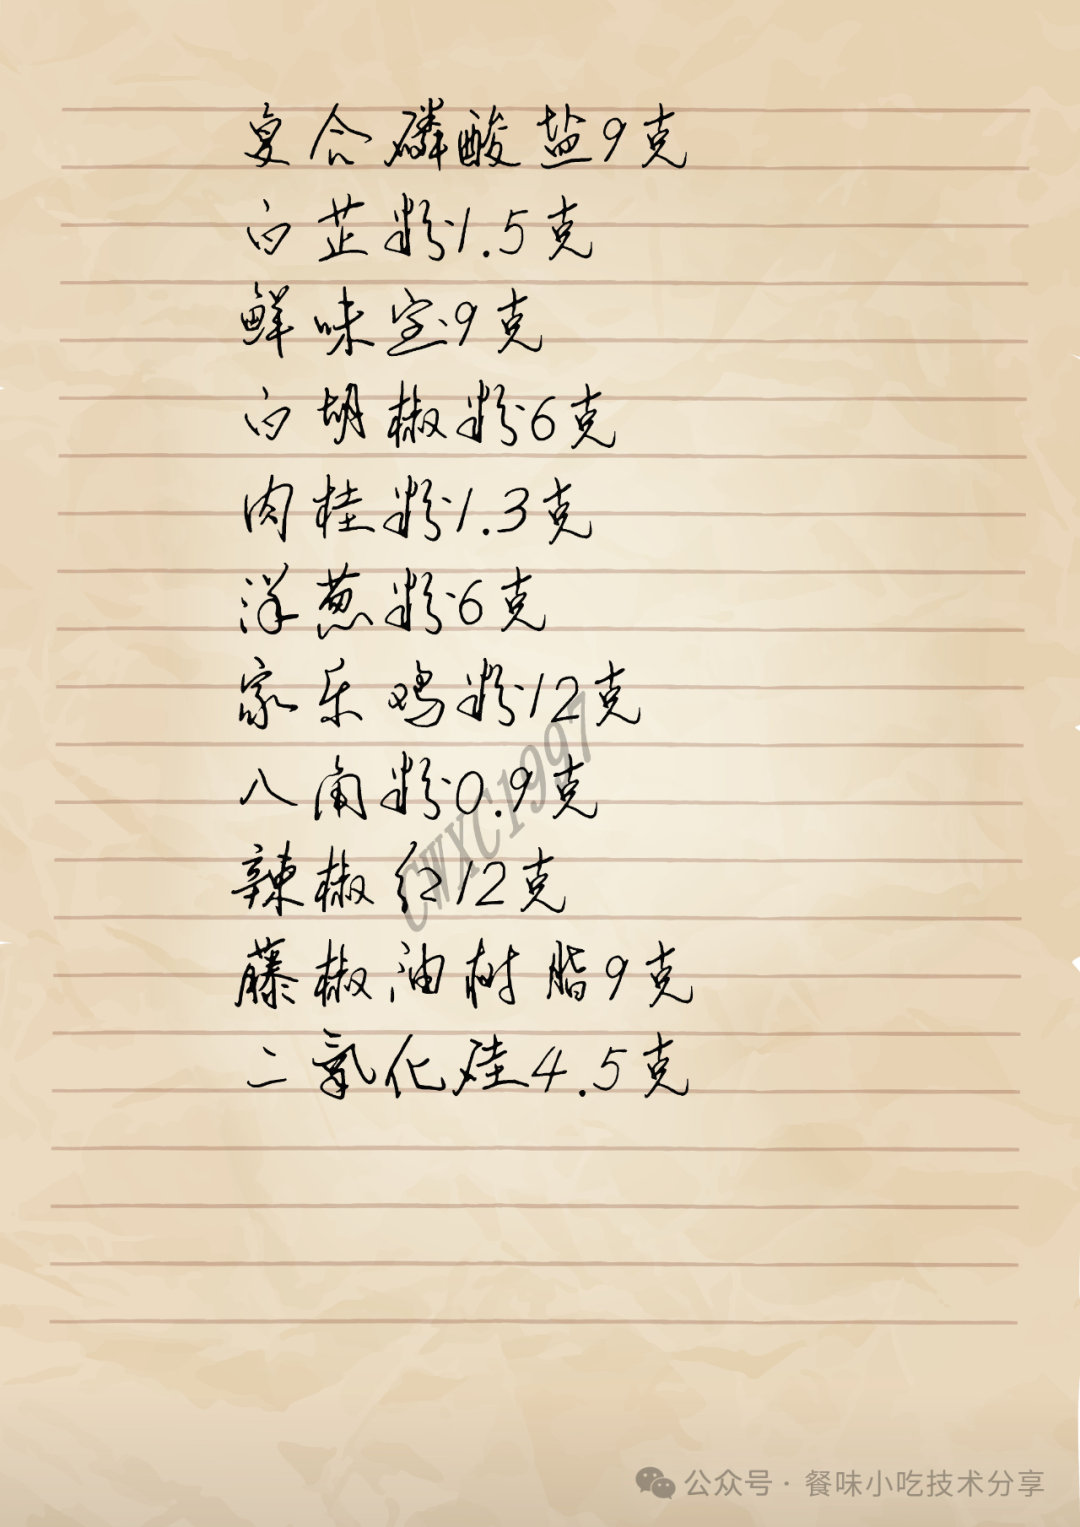 复合磷酸盐9克
白芷粉1.5克
鲜味宝9克
白胡椒粉6克
肉桂粉1.3克
洋葱粉6克
家乐鸡粉12克
八角粉0.9克
辣椒红12克
藤椒油树脂9克
二氧化硅4.5克
CWXC1997
公众号·餐味小吃技术分享